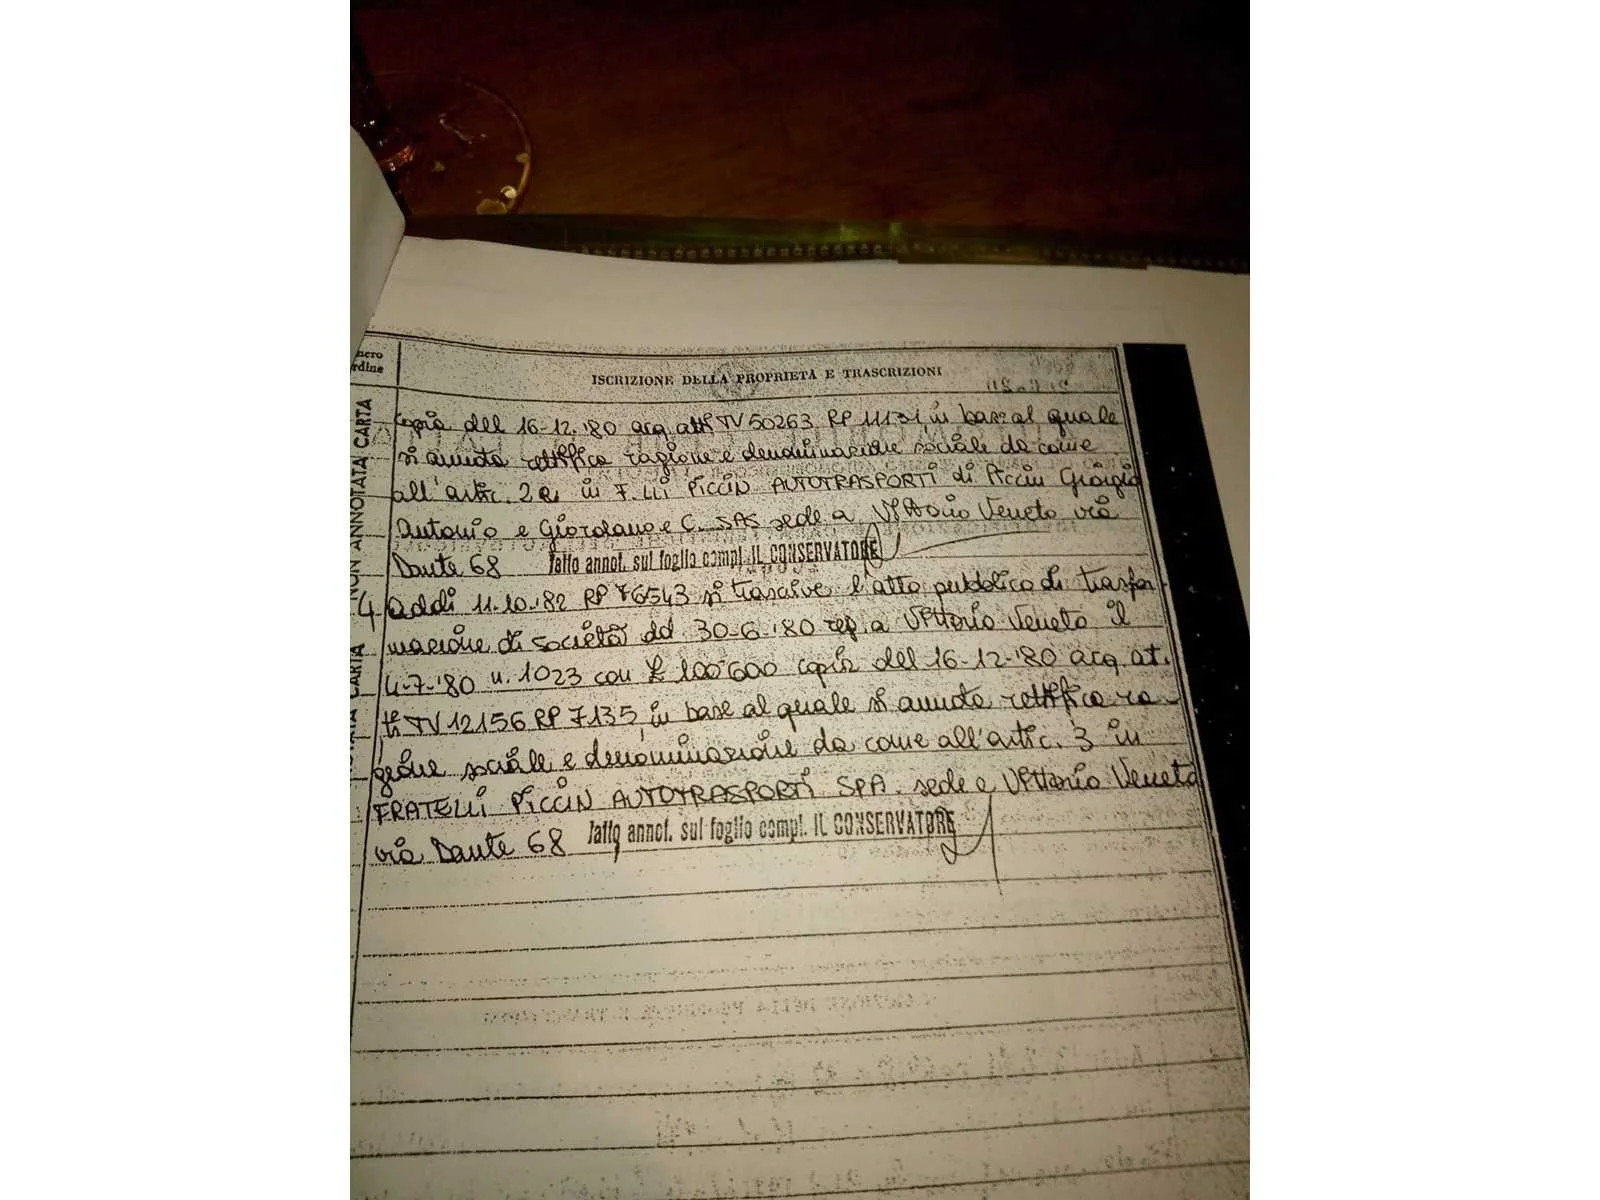 nero
rdine
ISCRIZIONE DELLA PROPRIETÀ E TRASCRIZIONI
NON ANNOTATA CARTA
CARTA
copia del 16-12-'80 acq atti TV 50263 RP 11131 in base al quale
si annota rettifica ragione e denominazione sociale da come
all'artic. 2 in F.LLI PICCIN AUTOTRASPORTI di Piccin Giorgio
Antonio e Giordano e C. SAS sede a Vittorio Veneto via
Dante 68 fatto annot. sul foglio compl. IL CONSERVATORE
4 addì 11.10.'82 RP 76543 si trascrive l'atto pubblico di trasfor-
mazione di società dd. 30-6-'80 reg. a Vittorio Veneto il
4-7-'80 n. 1023 con £ 100.600 copia del 16-12-'80 acq. at.
ti TV 12156 RP 7135 in base al quale si annota rettifica ra-
gione sociale e denominazione da come all'artic. 3 in
FRATELLI PICCIN AUTOTRASPORTI SPA. sede a Vittorio Veneto
via Dante 68 fatto annot. sul foglio compl. IL CONSERVATORE